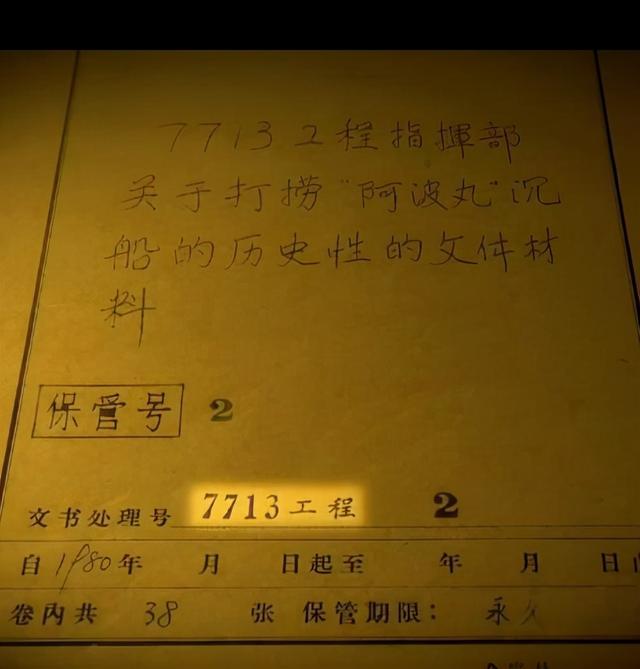 7713工程指揮部
关于打捞"阿波丸"沉
船的历史性的文体材
料
保管号 2
文书处理号 7713工程 2
自1980年 月 日起至 年 月 日
卷内共 38 张 保管期限: 永久